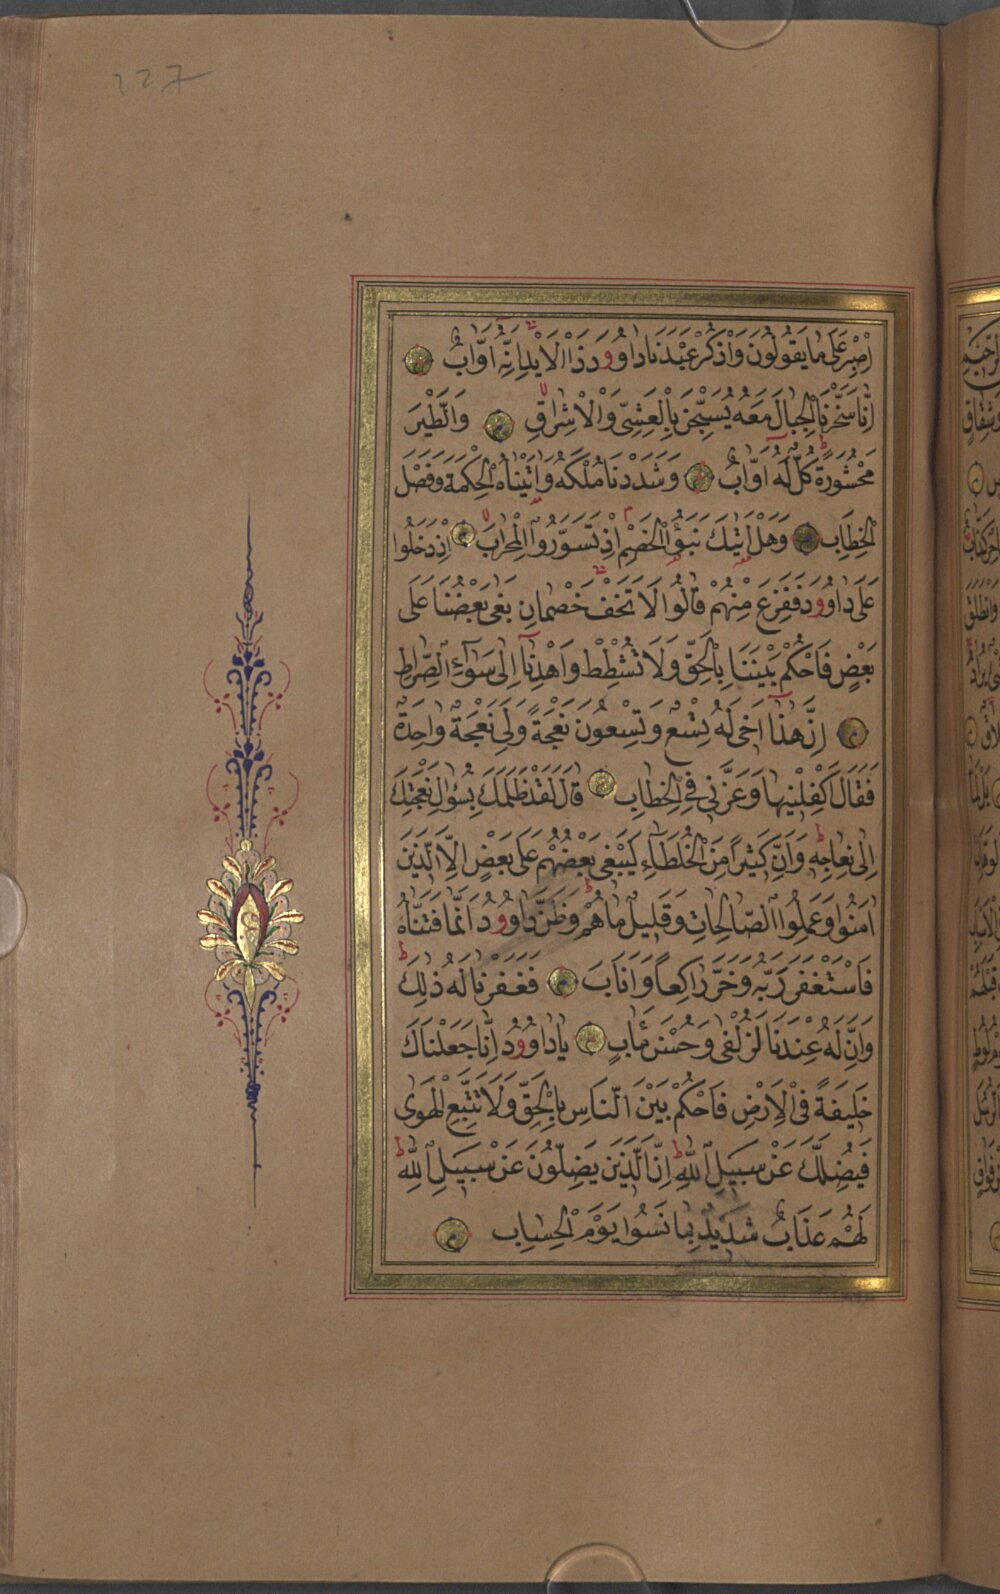 227
اِصْبِرْ عَلٰى مَا يَقُولُونَ وَاذْكُرْ عَبْدَنَا دَاوُودَ ذَا الْاَيْدِ اِنَّهُ اَوَّابٌ
اِنَّا سَخَّرْنَا الْجِبَالَ مَعَهُ يُسَبِّحْنَ بِالْعَشِىِّ وَالْاِشْرَاقِ وَالطَّيْرَ
مَحْشُورَةً كُلٌّ لَهُ اَوَّابٌ وَشَدَدْنَا مُلْكَهُ وَاٰتَيْنَاهُ الْحِكْمَةَ وَفَصْلَ
الْخِطَابِ وَهَلْ اَتٰيكَ نَبَؤُا الْخَصْمِ اِذْ تَسَوَّرُوا الْمِحْرَابَ اِذْ دَخَلُوا
عَلٰى دَاوُودَ فَفَزِعَ مِنْهُمْ قَالُوا لَا تَخَفْ خَصْمَانِ بَغٰى بَعْضُنَا عَلٰى
بَعْضٍ فَاحْكُمْ بَيْنَنَا بِالْحَقِّ وَلَا تُشْطِطْ وَاهْدِنَٓا اِلٰى سَوَٓاءِ الصِّرَاطِ
اِنَّ هٰذَٓا اَخٖى لَهُ تِسْعٌ وَتِسْعُونَ نَعْجَةً وَلِىَ نَعْجَةٌ وَاحِدَةٌ
فَقَالَ اَكْفِلْنٖيهَا وَعَزَّنٖى فِى الْخِطَابِ قَالَ لَقَدْ ظَلَمَكَ بِسُؤَالِ نَعْجَتِكَ
اِلٰى نِعَاجِهٖ وَاِنَّ كَثٖيرًا مِنَ الْخُلَطَٓاءِ لَيَبْغٖى بَعْضُهُمْ عَلٰى بَعْضٍ اِلَّا الَّذٖينَ
اٰمَنُوا وَعَمِلُوا الصَّالِحَاتِ وَقَلٖيلٌ مَا هُمْ وَظَنَّ دَاوُودُ اَنَّمَا فَتَنَّاهُ
فَاسْتَغْفَرَ رَبَّهُ وَخَرَّ رَاكِعًا وَاَنَابَ فَغَفَرْنَا لَهُ ذٰلِكَ
وَاِنَّ لَهُ عِنْدَنَا لَزُلْفٰى وَحُسْنَ مَاٰبٍ يَا دَاوُودُ اِنَّا جَعَلْنَاكَ
خَلٖيفَةً فِى الْاَرْضِ فَاحْكُمْ بَيْنَ النَّاسِ بِالْحَقِّ وَلَا تَتَّبِعِ الْهَوٰى
فَيُضِلَّكَ عَنْ سَبٖيلِ اللّٰهِ اِنَّ الَّذٖينَ يَضِلُّونَ عَنْ سَبٖيلِ اللّٰهِ
لَهُمْ عَذَابٌ شَدٖيدٌ بِمَا نَسُوا يَوْمَ الْحِسَابِ